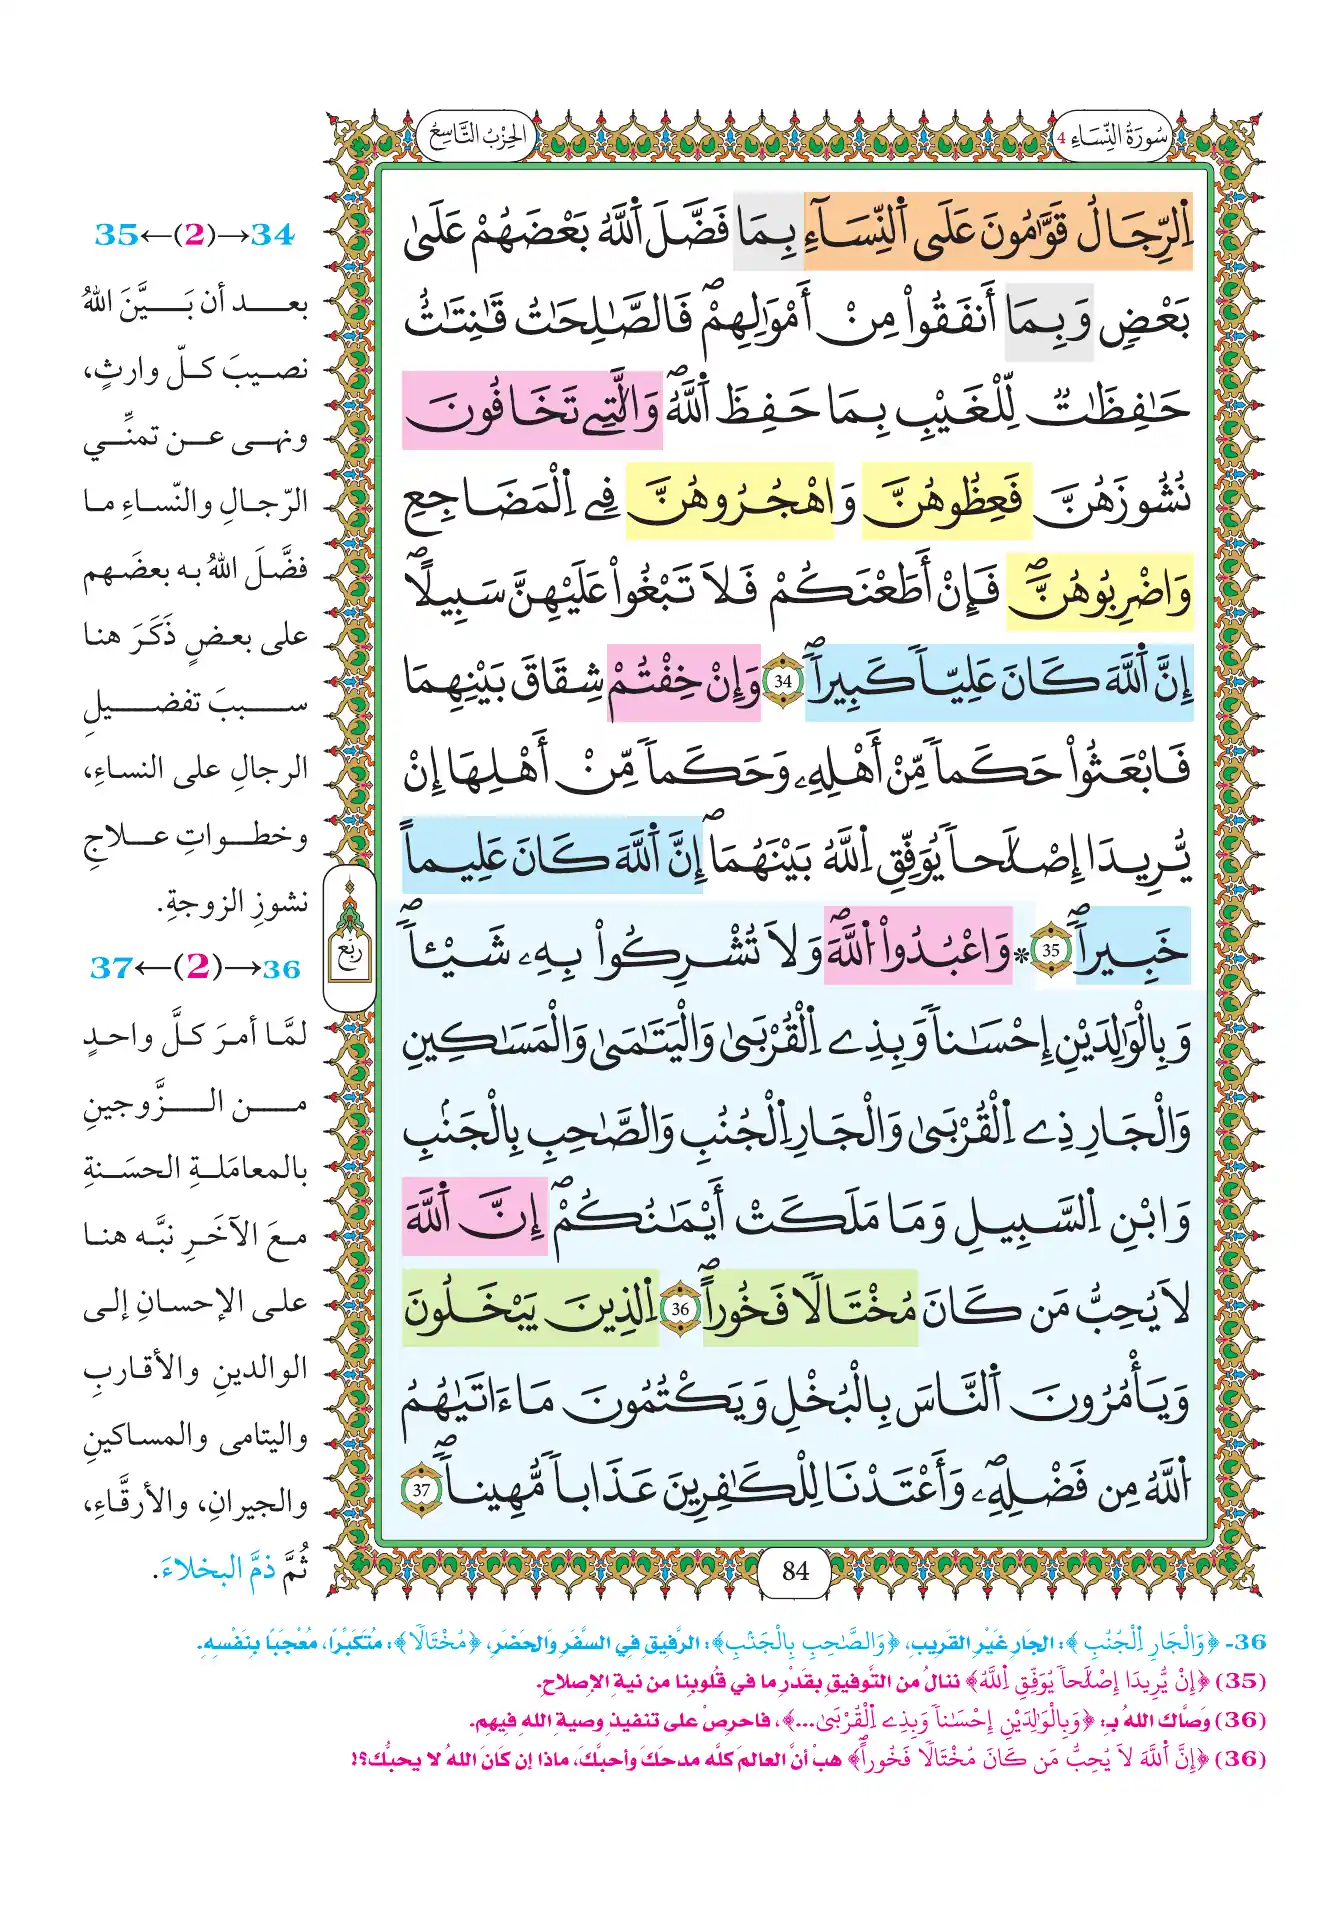 سُورَةُ النِّسَاءِ 4
الحِزْبُ التَّاسِعُ
اِ۬لرِّجَالُ قَوَّٰمُونَ عَلَى اَ۬لنِّسَآءِ بِمَا فَضَّلَ اَ۬للَّهُ بَعْضَهُمْ عَلَىٰ
بَعْضٖ وَبِمَا أَنفَقُواْ مِنْ أَمْوَٰلِهِمْۖ فَالصَّٰلِحَٰتُ قَٰنِتَٰتٌ
حَٰفِظَٰتٞ لِّلْغَيْبِ بِمَا حَفِظَ اَ۬للَّهُۖ وَالَّٰتِے تَخَافُونَ
نُشُوزَهُنَّ فَعِظُوهُنَّ وَاهْجُرُوهُنَّ فِے اِ۬لْمَضَاجِعِ
وَاضْرِبُوهُنَّۖ فَإِنْ أَطَعْنَكُمْ فَلَا تَبْغُواْ عَلَيْهِنَّ سَبِيلًاۖ
إِنَّ اَ۬للَّهَ كَانَ عَلِيّاٗ كَبِيراٗۖ 34 وَإِنْ خِفْتُمْ شِقَاقَ بَيْنِهِمَا
فَابْعَثُواْ حَكَماٗ مِّنْ أَهْلِهِۦ وَحَكَماٗ مِّنْ أَهْلِهَا إِنْ
يُّرِيدَا إِصْلَٰحاٗ يُوَفِّقِ اِ۬للَّهُ بَيْنَهُمَاۖ إِنَّ اَ۬للَّهَ كَانَ عَلِيماً
خَبِيراٗۖ 35 * وَاعْبُدُواْ اُ۬للَّهَۖ وَلَا تُشْرِكُواْ بِهِۦ شَيْـٔاٗۖ
وَبِالْوَٰلِدَيْنِ إِحْسَٰناٗ وَبِذِے اِ۬لْقُرْبَىٰ وَالْيَتَٰمَىٰ وَالْمَسَٰكِينِ
وَالْجَارِ ذِے اِ۬لْقُرْبَىٰ وَالْجَارِ اِ۬لْجُنُبِ وَالصَّٰحِبِ بِالْجَنۢبِ
وَابْنِ اِ۬لسَّبِيلِ وَمَا مَلَكَتْ أَيْمَٰنُكُمْۖ إِنَّ اَ۬للَّهَ
لَا يُحِبُّ مَن كَانَ مُخْتَالٗا فَخُوراًۖ 36 اِ۬لذِينَ يَبْخَلُونَ
وَيَأْمُرُونَ اَ۬لنَّاسَ بِالْبُخْلِ وَيَكْتُمُونَ مَا ءَاتَيٰهُمُ
اُ۬للَّهُ مِن فَضْلِهِۦۖ وَأَعْتَدْنَا لِلْكَٰفِرِينَ عَذَاباٗ مُّهِيناٗۖ 37
رُبُع
84
34→(2)←35
بعد أن بَيَّنَ اللهُ
نصيبَ كلّ وارثٍ،
ونهى عن تمنِّي
الرّجالِ والنّساءِ ما
فضَّلَ اللهُ به بعضَهم
على بعضٍ ذَكَرَ هنا
سببَ تفضيلِ
الرجالِ على النساءِ،
وخطواتِ علاجِ
نشوزِ الزوجةِ.
36→(2)←37
لمَّا أمرَ كلَّ واحدٍ
من الزَّوجينِ
بالمعامَلةِ الحسَنةِ
معَ الآخَرِ نبَّه هنا
على الإحسانِ إلى
الوالدينِ والأقاربِ
واليتامى والمساكينِ
والجيرانِ، والأرقَّاءِ،
ثُمَّ ذمَّ البخلاءَ.
36- ﴿وَالْجَارِ اِ۬لْجُنُبِ﴾: الجارِ غَيْرِ القَرِيبِ، ﴿وَالصَّٰحِبِ بِالْجَنۢبِ﴾: الرَّفِيقِ فِي السَّفَرِ وَالحَضَرِ، ﴿مُخْتَالٗا﴾: مُتَكَبِّرًا، مُعْجَبًا بِنَفْسِهِ.
(35) ﴿إِنْ يُّرِيدَا إِصْلَٰحاٗ يُوَفِّقِ اِ۬للَّهُ﴾ ننالُ من التَّوفيقِ بقَدْرِ ما في قُلوبِنا من نيةِ الإصلاحِ.
(36) وَصَّاكَ اللهُ بـ: ﴿وَبِالْوَٰلِدَيْنِ إِحْسَٰناٗ وَبِذِے اِ۬لْقُرْبَىٰ...﴾، فاحرِصْ على تنفيذِ وصيةِ اللهِ فيهِم.
(36) ﴿إِنَّ اَ۬للَّهَ لَا يُحِبُّ مَن كَانَ مُخْتَالٗا فَخُوراًۖ﴾ هبْ أنَّ العالمَ كلَّه مدحَكَ وأحبَّكَ، ماذا إن كَانَ اللهُ لا يحبُّك؟!